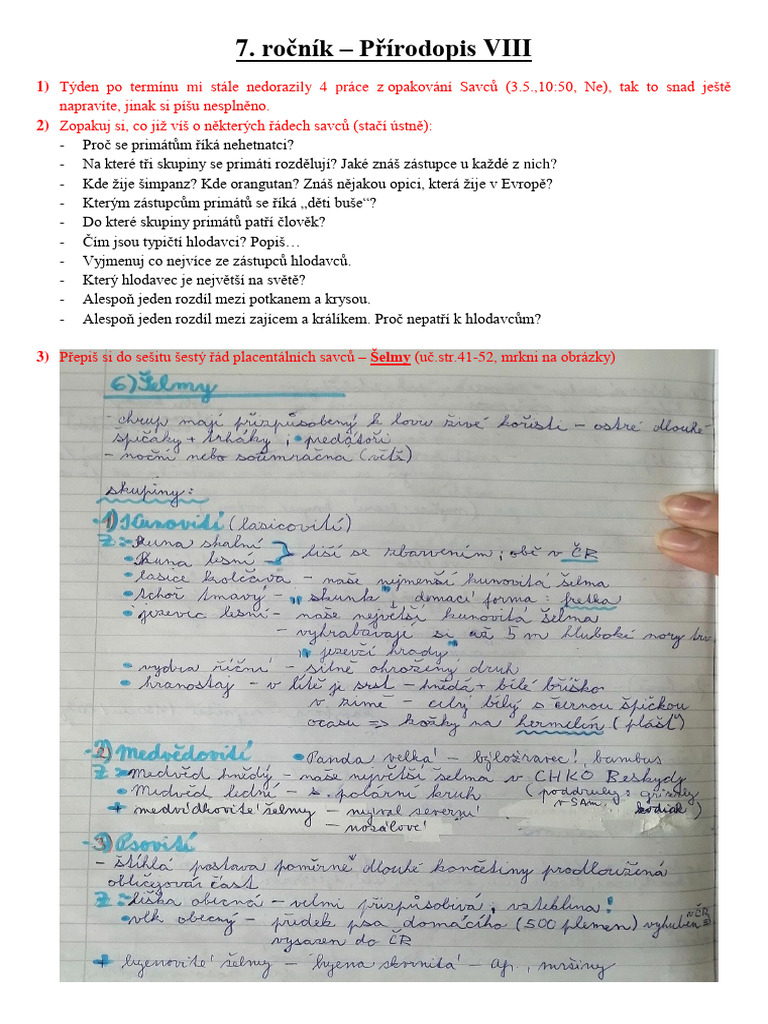 7. ročník – Přírodopis VIII
1) Týden po termínu mi stále nedorazily 4 práce z opakování Savců (3.5.,10:50, Ne), tak to snad ještě
napravíte, jinak si píšu nesplněno.
2) Zopakuj si, co již víš o některých řádech savců (stačí ústně):
- Proč se primátům říká nehetnatci?
- Na které tři skupiny se primáti rozdělují? Jaké znáš zástupce u každé z nich?
- Kde žije šimpanz? Kde orangutan? Znáš nějakou opici, která žije v Evropě?
- Kterým zástupcům primátů se říká „děti buše“?
- Do které skupiny primátů patří člověk?
- Čím jsou typičtí hlodavci? Popiš…
- Vyjmenuj co nejvíce ze zástupců hlodavců.
- Který hlodavec je největší na světě?
- Alespoň jeden rozdíl mezi potkanem a krysou.
- Alespoň jeden rozdíl mezi zajícem a králíkem. Proč nepatří k hlodavcům?
3) Přepiš si do sešitu šestý řád placentálních savců – Šelmy (uč.str.41-52, mrkni na obrázky)
6) Šelmy
- chrup mají přizpůsobený k lovu živé kořisti – ostré dlouhé
špičáky + trháky ; • predátoři
- noční nebo soumračná (větš)
skupiny:
-1) Kunovití (lasicovití)
Z: • Kuna skalní
• Kuna lesní } liší se zbarvením; obě v ČR
• lasice kolčava – naše nejmenší kunovitá šelma
• tchoř tmavý – "skunk", domácí forma: fretka
• jezevec lesní – naše největší kunovitá šelma
- vyhrabávaje si až 5 m hluboké nory tzv.
"jezevčí hrady"
• vydra říční – silně ohrožený druh
• hranostaj – v létě je srst – hnědá + bílé bříško
v zimě – celý bílý s černou špičkou
ocasu => kožky na hermelín (plášť)
-2) Medvědovití • Panda velká – býložravec!, bambus
Z: • Medvěd hnědý – naše největší šelma v CHKO Beskydy
• Medvěd lední – s. polární kruh (poddruhy: grizzly
v SAm. kodiak)
+ medvídkovité šelmy – mýval severní
– nosálové
-3) Psovití
- štíhlá postava poměrně dlouhé končetiny prodloužená
obličejová část
Z: • liška obecná – velmi přizpůsobivá, vzteklina!
• vlk obecný – předek psa domácího (500 plemen) vyhuben v ČR =>
vysazen do ČR
+ hyenovité šelmy – hyena skvrnitá – Af., mršiny